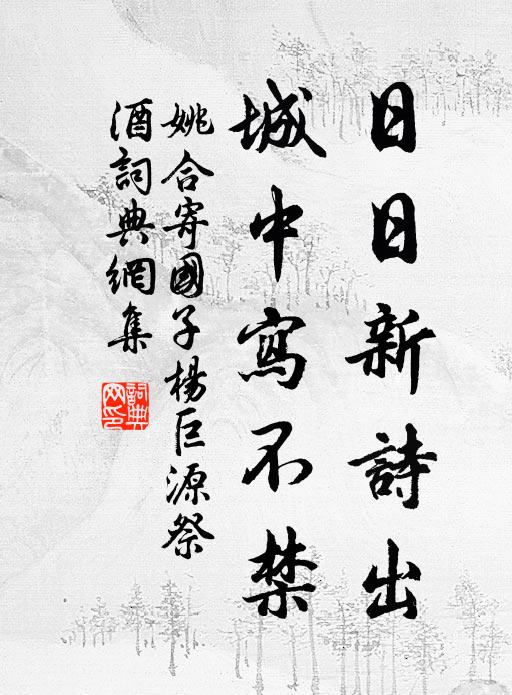 日日新詩出
城中寫不禁
姚合寄國子楊巨源祭
酒詞典網集
詞典
网印